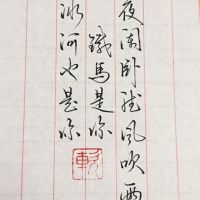 夜阑卧听风吹雨
铁馬是你
冰河也是你